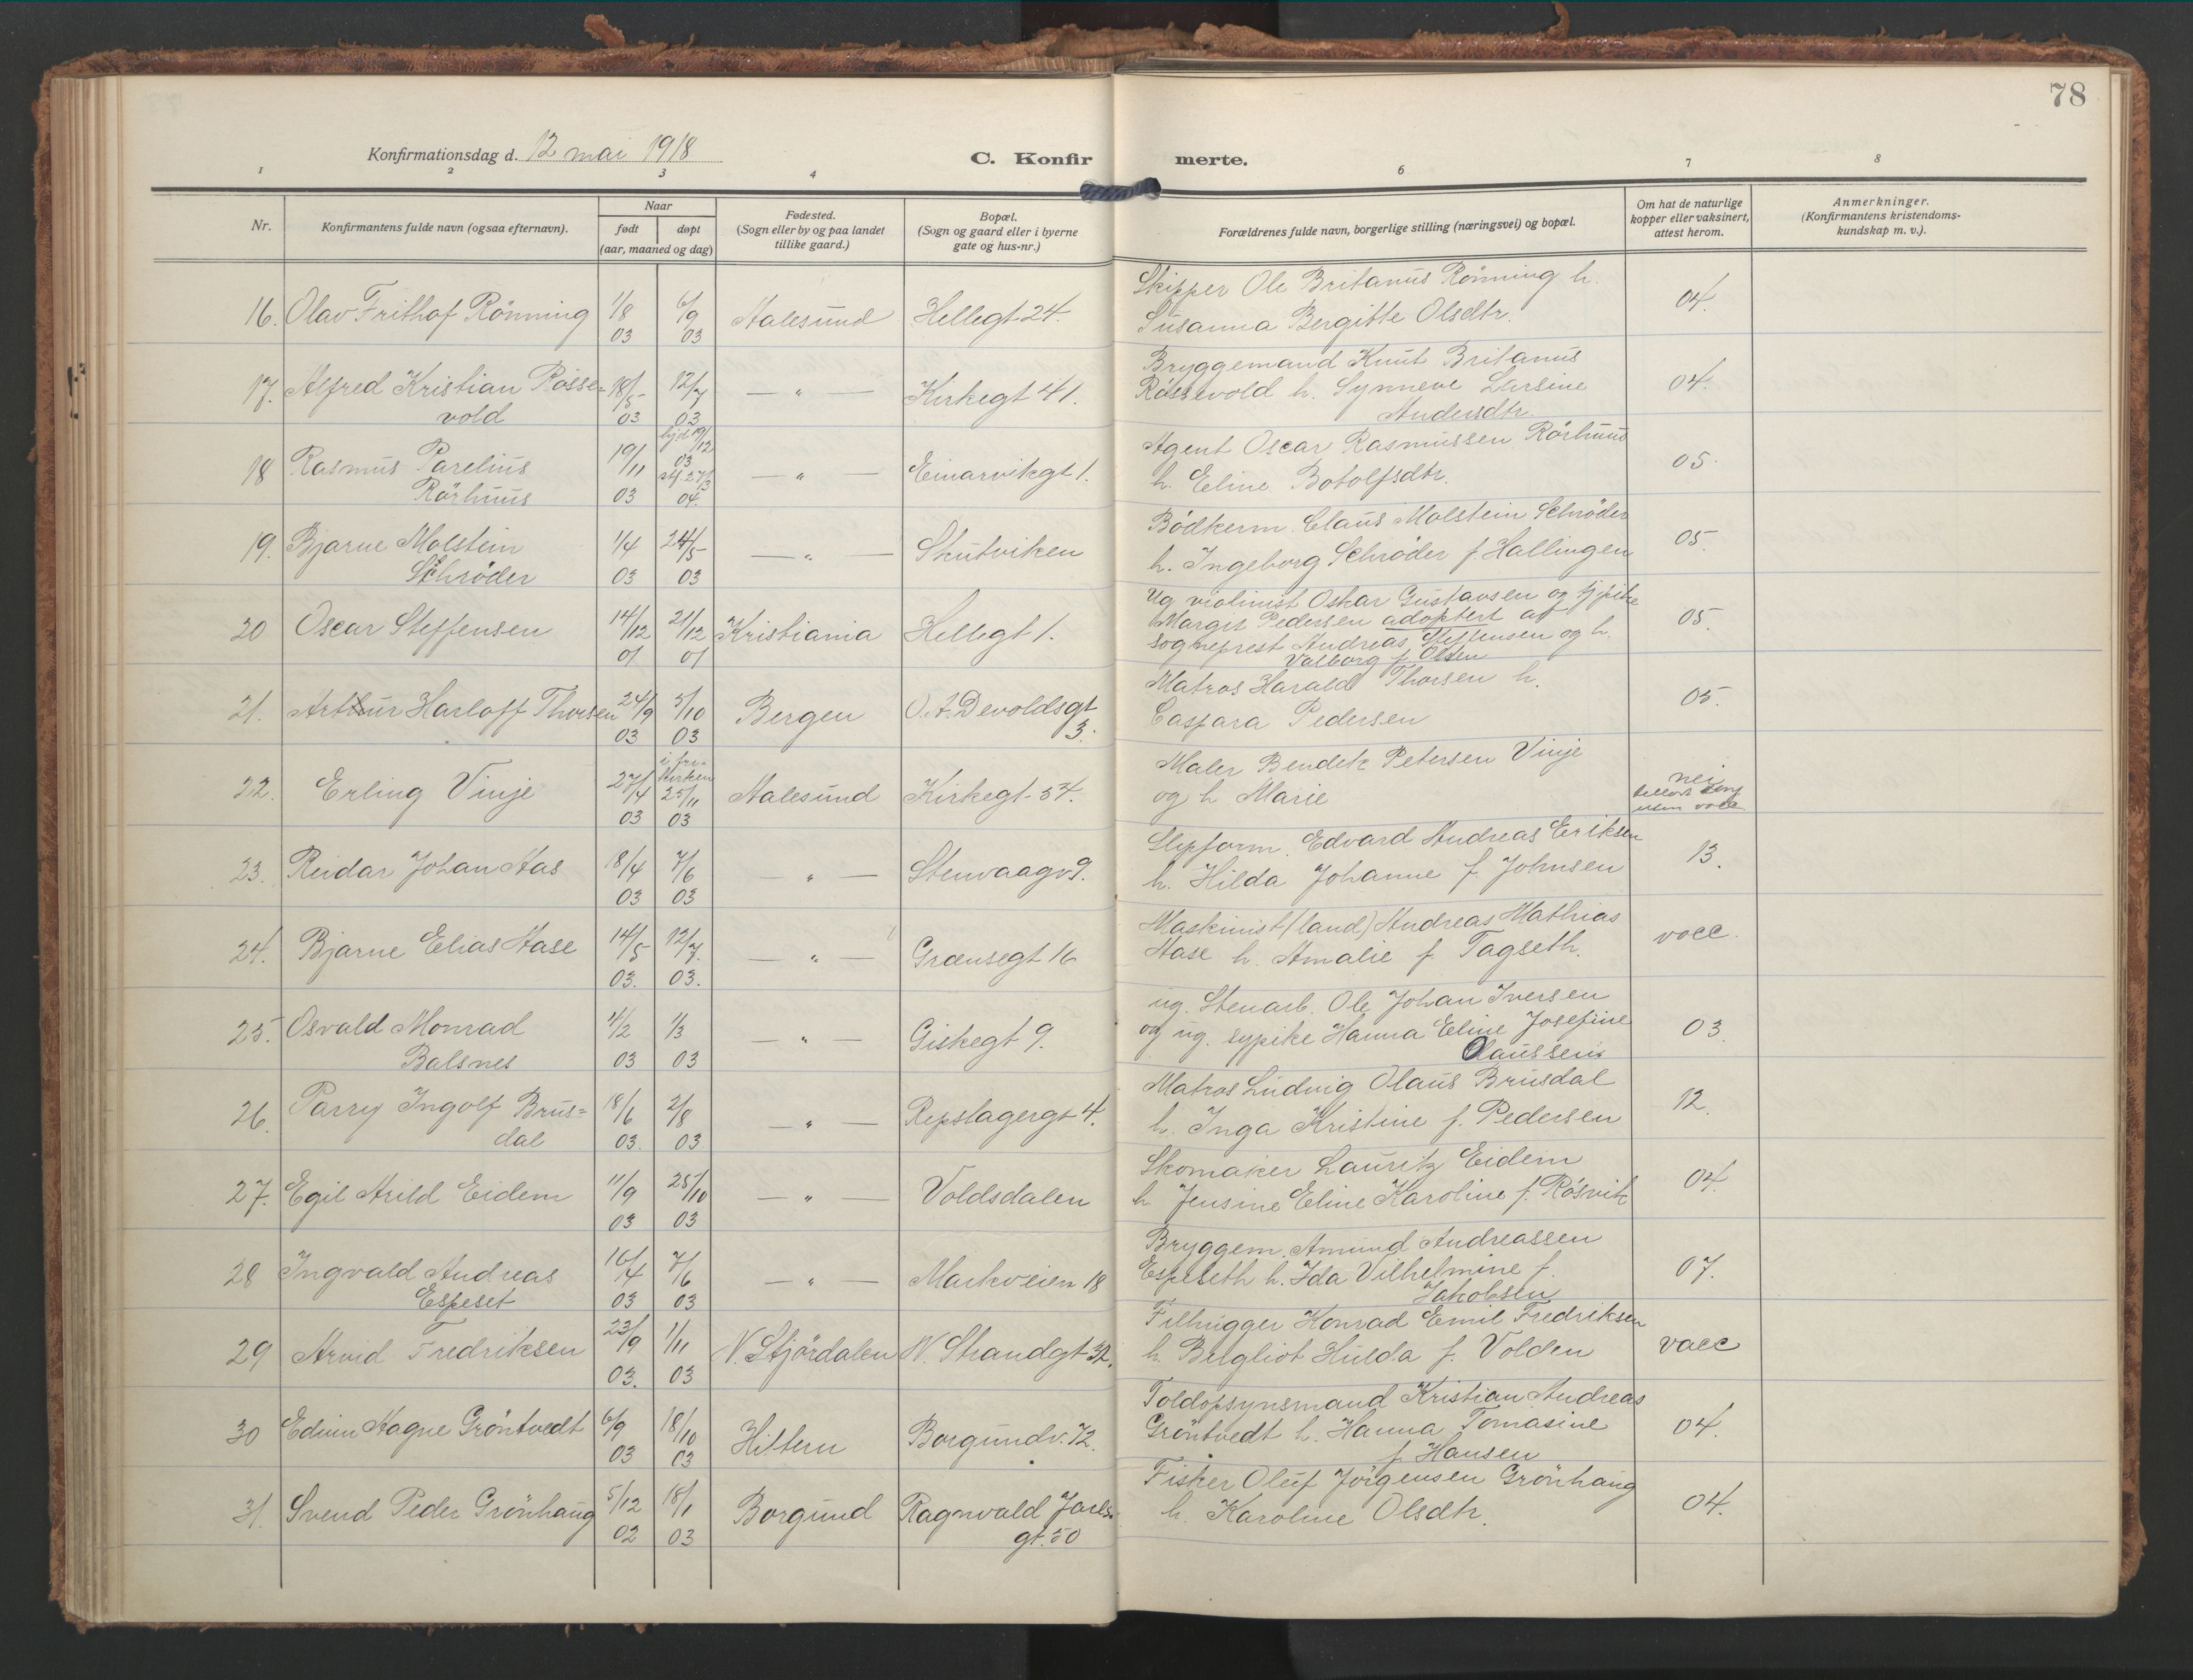 78
Konfirmationsdag d. 12 mai 1918
C. Konfirmerte.
1 2 3 4 6 7 8
Nr.
Konfirmantens fulde navn (ogsaa efternavn).
Naar
født døpt
(aar, maaned og dag)
Fødested.
(Sogn eller by og paa landet
tillike gaard.)
Bopæl.
(Sogn og gaard eller i byerne
gate og hus-nr.)
Forældrenes fulde navn, borgerlige stilling (næringsvei) og bopæl.
Om hat de naturlige
kopper eller vaksinert,
attest herom.
Anmerkninger.
(Konfirmantens kristendoms-
kundskap m. v.).
16. Olav Frithof Rönning 1/8 03 6/9 03 Aalesund Hellegt 24. Skipper Ole Britanus Rönning h. 04.
Susanna Bergitte Olsdtr.
17. Alfred Kristian Rösse= 18/5 03 12/7 03 — " — Kirkegt 41. Bryggemand Knut Britanus 04.
vold Røssevold h. Synneve Larsine
Andersdtr.
18 Rasmus Parelius 19/11 03 hjd 19/12 03 stf. 27/3 04. — " — Einarvikgt 1. Agent Oscar Rasmussen Rörhuus 05.
Rörhuus h. Eline Botolfsdtr.
19. Bjarne Molstein 1/4 03 24/5 03 — " — Skutviken Bödkerm. Claus Molstein Schröder 05.
Schröder h. Ingeborg Schröder f. Hallingen
20 Oscar Steffensen 14/12 01 21/12 01 Kristiania Hellegt 1. Ug violinist Oskar Gustavsen og tjpike 05.
Margit Pedersen adoptert af
sogneprest Andreas Steffensen og h.
Valborg f. Olsen
21. Arthur Harloff Thorsen 24/9 03 5/10 03 Bergen O. A. Devoldsgt 3. Matros Harald Thorsen h. 05.
Caspara Pedersen
22. Erling Vinje 27/4 03 i frikirken 25/11 03 Aalesund Kirkegt 54. Maler Bendik Petersen Vinje nei
og h Marie uten vacc
23. Reidar Johan Aas 18/4 03 7/6 03 — " — Stenvaagv 9. Slipform. Edvard Andreas Eriksen 13.
h. Hilda Johanne f. Johnsen
24. Bjarne Elias Aase 14/5 03. 12/7. 03. — " — Grænsegt 16 Maskinist (land) Andreas Mathias vacc.
Aase h. Amalie f Tagseth.
25. Osvald Monrad 4/2 03 1/3 03 — " — Giskegt 9. ug. Stenarb. Ole Johan Iversen 03
Balsnes og ug. sypike Hanna Eline Josefine
Olaussen
26. Parry Ingolf Brus= 18/6 03. 2/8 03 — " — Repslagergt 4. Matros Ludvig Olaus Brusdal 12.
dal h. Inga Kristine f. Pedersen
27. Egil Arild Eidem 11/9 03 25/10 03 — " — Voldsdalen Skomaker Lauritz Eidem 04.
h Jensine Eline Karoline f. Røsvik
28 Ingvald Andreas 16/4 03 7/6 03 — " — Markveien 18 Bryggem. Amund Andreassen 07.
Espeset Espeseth h. Ida Vilhelmine f.
Jakobsen
29 Arvid Fredriksen 23/9 03. 1/11 03 N. Stjördalen N. Strandgt 32. Filhugger Konrad Emil Fredriksen vacc
h. Bergliot Hulda f. Volden
30 Edvin Hagne Gröntvedt 6/9 03 18/10 03 Hittern Borgundv. 72. Toldopsynsmand Kristian Andreas 04.
Gröntvedt h. Hanna Tomasine
f Hansen
31. Svend Peder Grönhaug 5/12 02 18/1 03 Borgund Ragnvald Jarls Fisker Oluf Jörgensen Grönhaug 04.
gt. 50 h. Karoline Olsdtr.